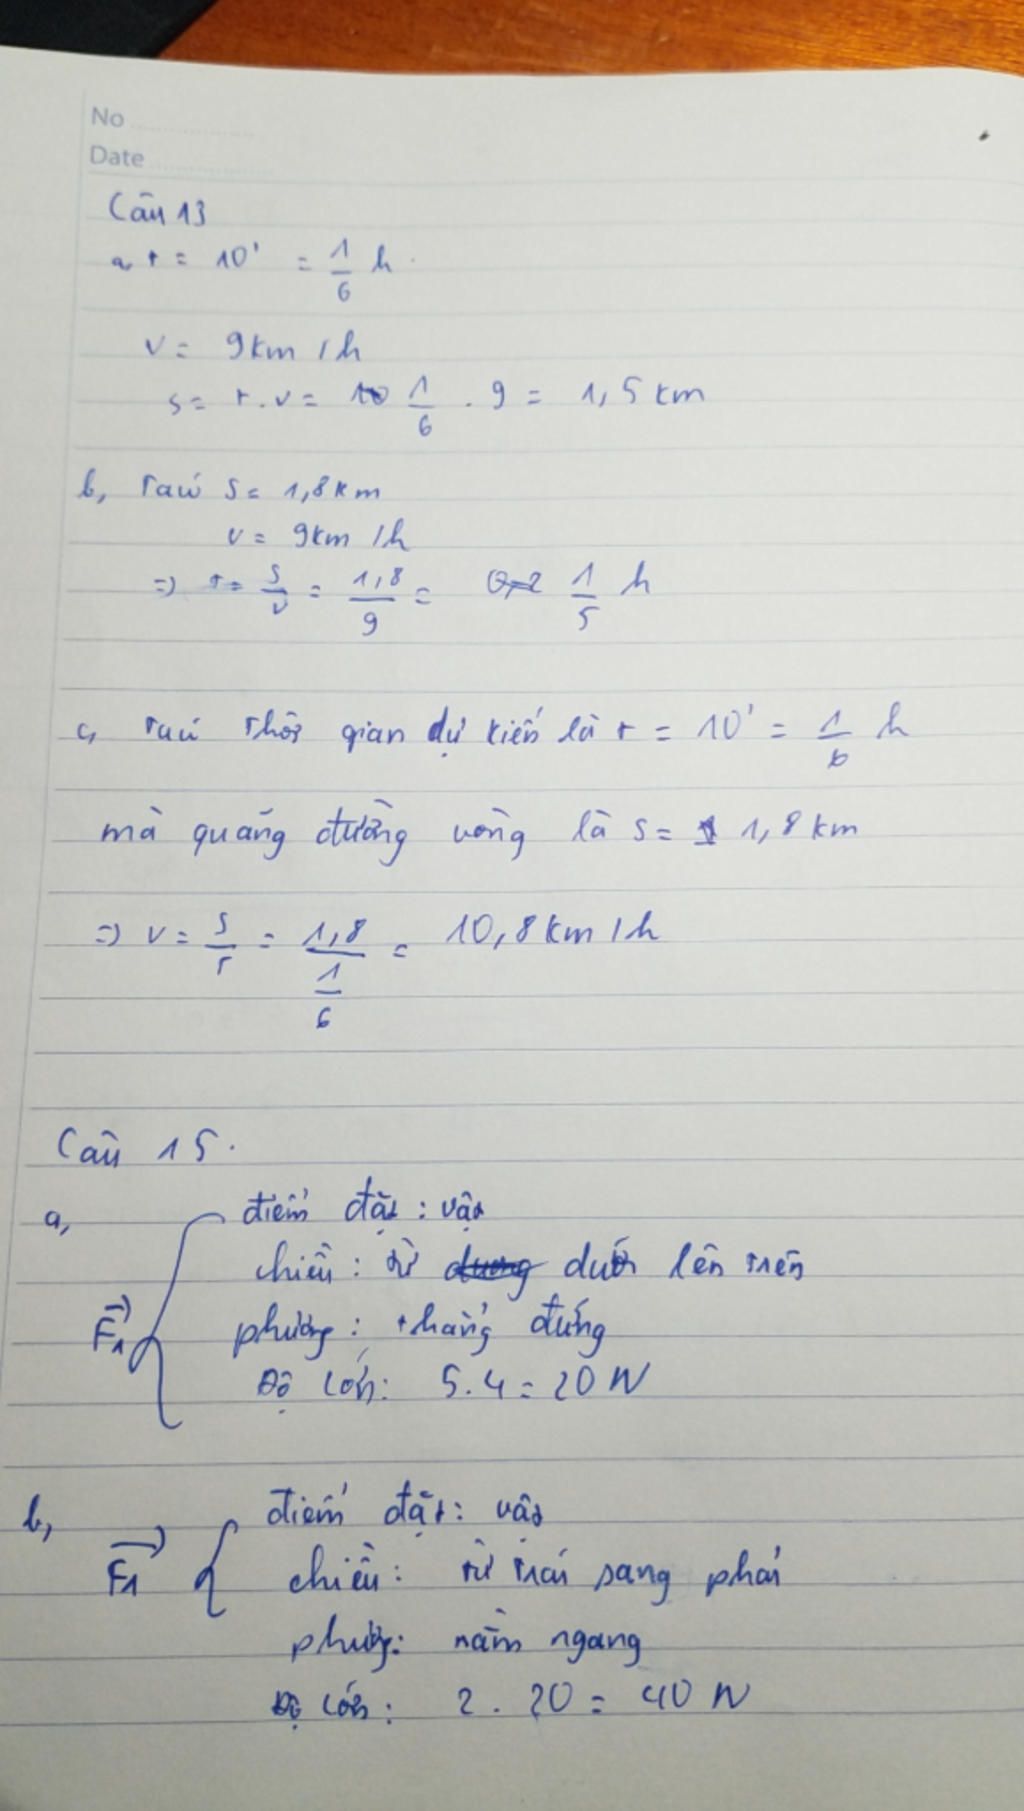 No
Date
Câu 13
a, t = 10' = 1/6 h
v = 9km/h
s = t.v = 1/6 . 9 = 1,5 km
b, s = 1,8 km
v = 9km/h
=) t = s/v = 1,8/9 = 1/5 h
c, thời gian dự kiến là t = 10' = 1/6 h
mà quãng đường vòng là s = 1,8 km
=) v = s/t = 1,8/(1/6) = 10,8 km/h
Câu 15.
a,
điểm đặt : vật
chiều : từ dưới lên trên
F₁
phương : thẳng đứng
Độ lớn: 5.4 = 20 N
b,
điểm đặt: vật
F1
chiều : từ trái sang phải
phương: nằm ngang
Độ lớn: 2. 20 = 40 N